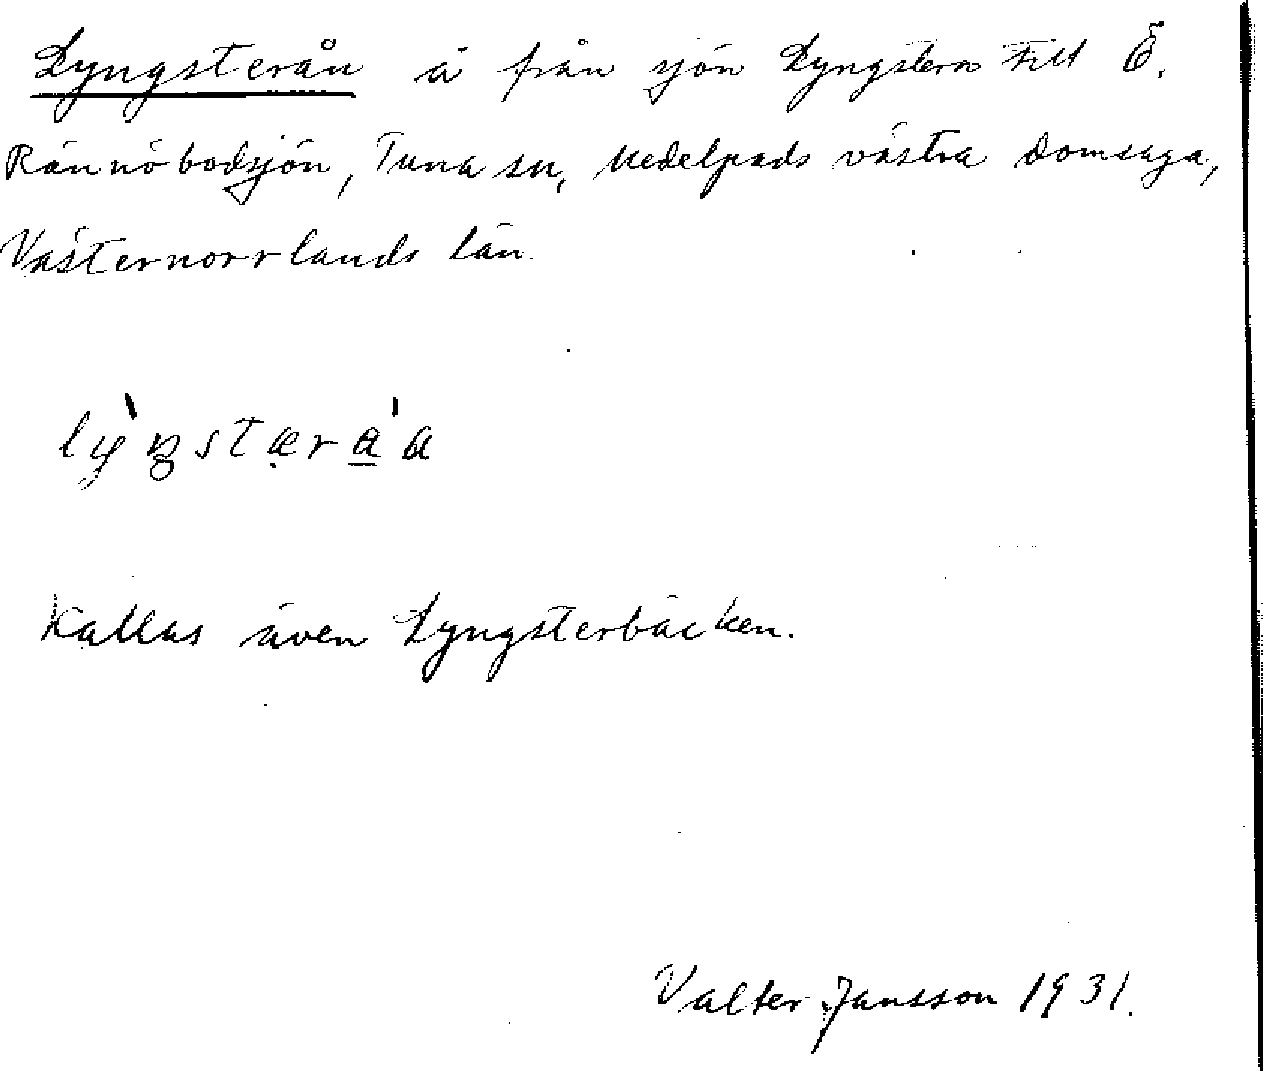 Lyngsterån å från sjön Lyngstern till Ö.
Rännöbodsjön, Tuna sn, Medelpads västra domsaga,
Västernorrlands län.
lỳŋstæra̲'a
Kallas även Lyngsterbäcken.
Valter Jansson 1931.